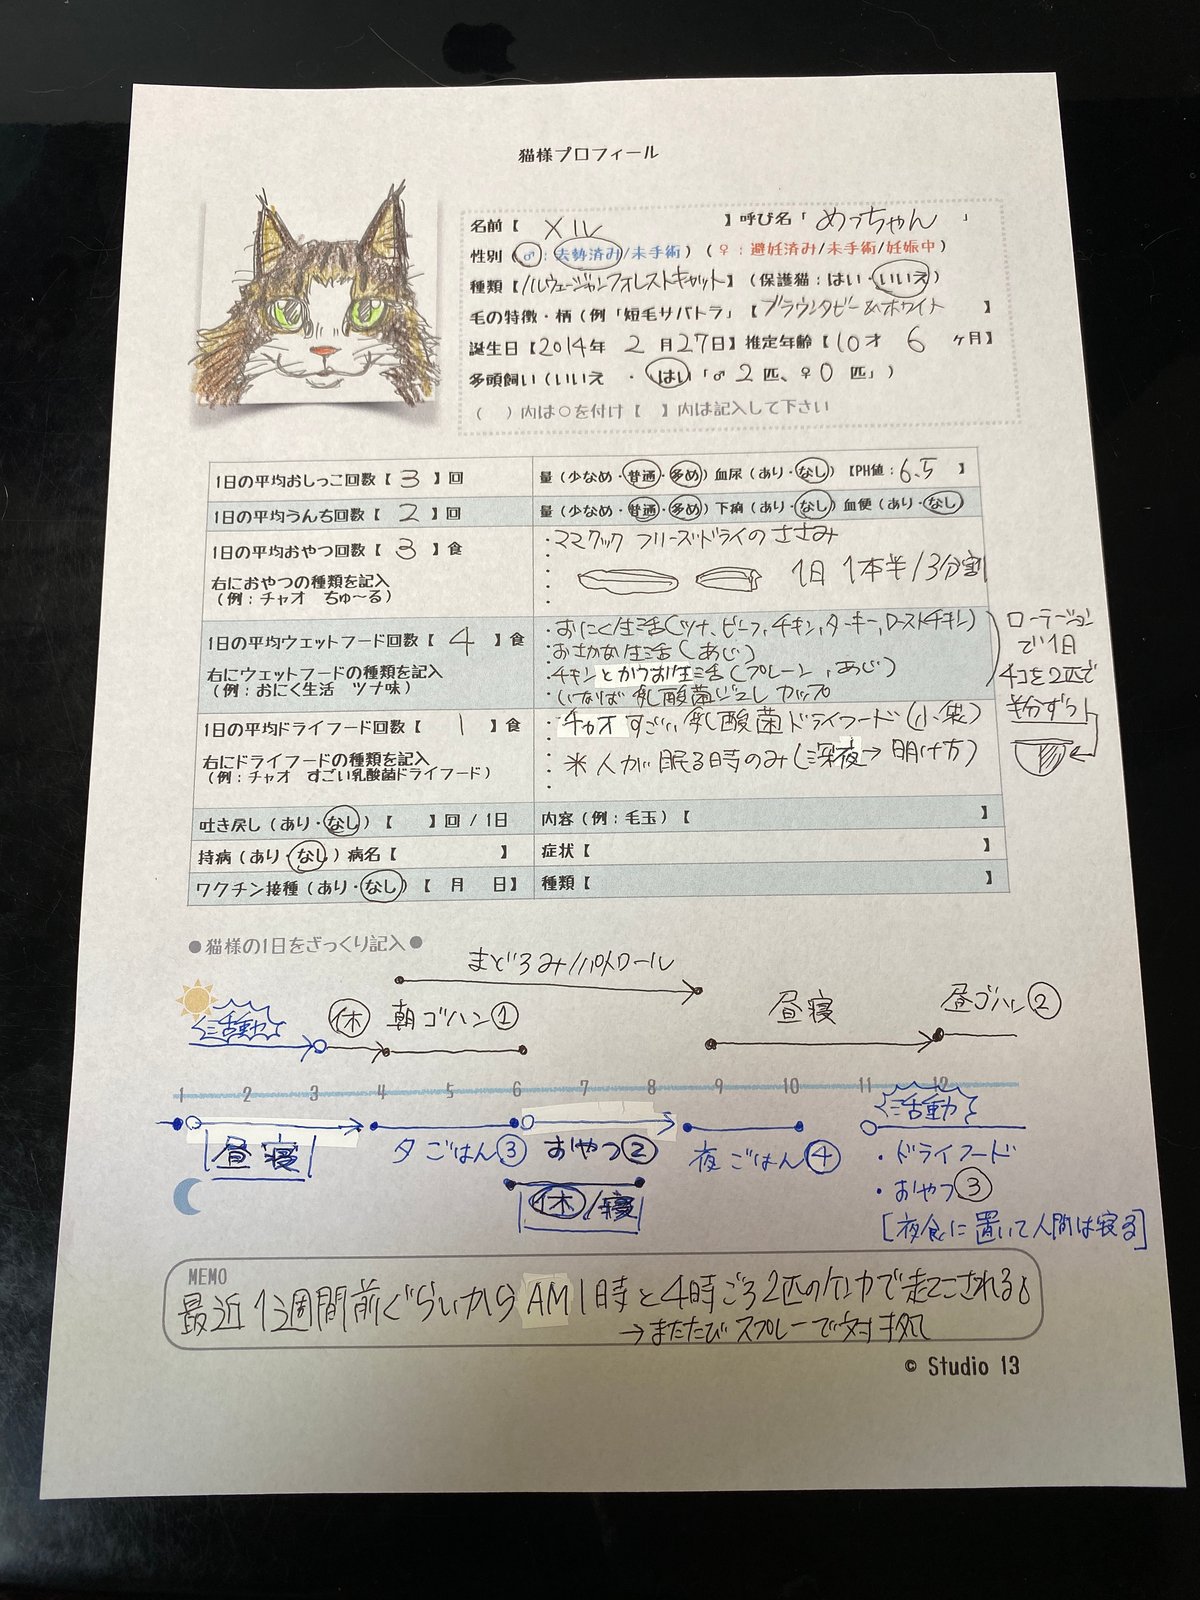 猫様プロフィール
名前【 メル 】呼び名「 めっちゃん 」
性別(♂:去勢済み/未手術)(♀:避妊済み/未手術/妊娠中)
種類【ノルウェージャンフォレストキャット】(保護猫:はい・いいえ)
毛の特徴・柄(例「短毛サバトラ」【ブラウンタビー&ホワイト 】
誕生日【2014年 2月27日】推定年齢【10才 6ヶ月】
多頭飼い(いいえ ・ はい「♂2匹、♀0匹」)
( )内は○を付け【 】内は記入して下さい
1日の平均おしっこ回数【 3 】回
量(少なめ・普通・多め)血尿(あり・なし)【PH値:6.5 】
1日の平均うんち回数【 2 】回
量(少なめ・普通・多め)下痢(あり・なし)血便(あり・なし)
1日の平均おやつ回数【 3 】食
右におやつの種類を記入
(例:チャオ ちゅ〜る)
・ママクック フリーズドライのささみ
1日 1本半/3分割
1日の平均ウェットフード回数【 4 】食
右にウェットフードの種類を記入
(例:おにく生活 ツナ味)
・おにく生活(ツナ、ビーフ、チキン、ターキー、ローストチキン)
・おさかな生活(あじ)
・チキンとかつお生活(プレーン、あじ)
・いなば 乳酸菌ジュレ カップ
ローテーション
で1日
4コを2匹で
半分ずつ
1日の平均ドライフード回数【 1 】食
右にドライフードの種類を記入
(例:チャオ すごい乳酸菌ドライフード)
・チャオ すごい乳酸菌ドライフード(小袋)
※人が眠る時のみ(深夜→明け方)
吐き戻し(あり・なし)【 】回/1日
内容(例:毛玉)【 】
持病(あり・なし)病名【 】
症状【 】
ワクチン接種(あり・なし)【 月 日】
種類【 】
●猫様の1日をざっくり記入●
まどろみ/パトロール
活動 休 朝ゴハン① 昼寝 昼ゴハン②
1 2 3 4 5 6 7 8 9 10 11 12
昼寝 夕ごはん③ おやつ② 夜ごはん④ 活動
休/寝
・ドライフード
・おやつ③
[夜食に置いて人間は寝る]
MEMO
最近1週間前ぐらいからAM1時と4時ごろ2匹のケンカで起こされる
→またたびスプレーで対処
© Studio 13